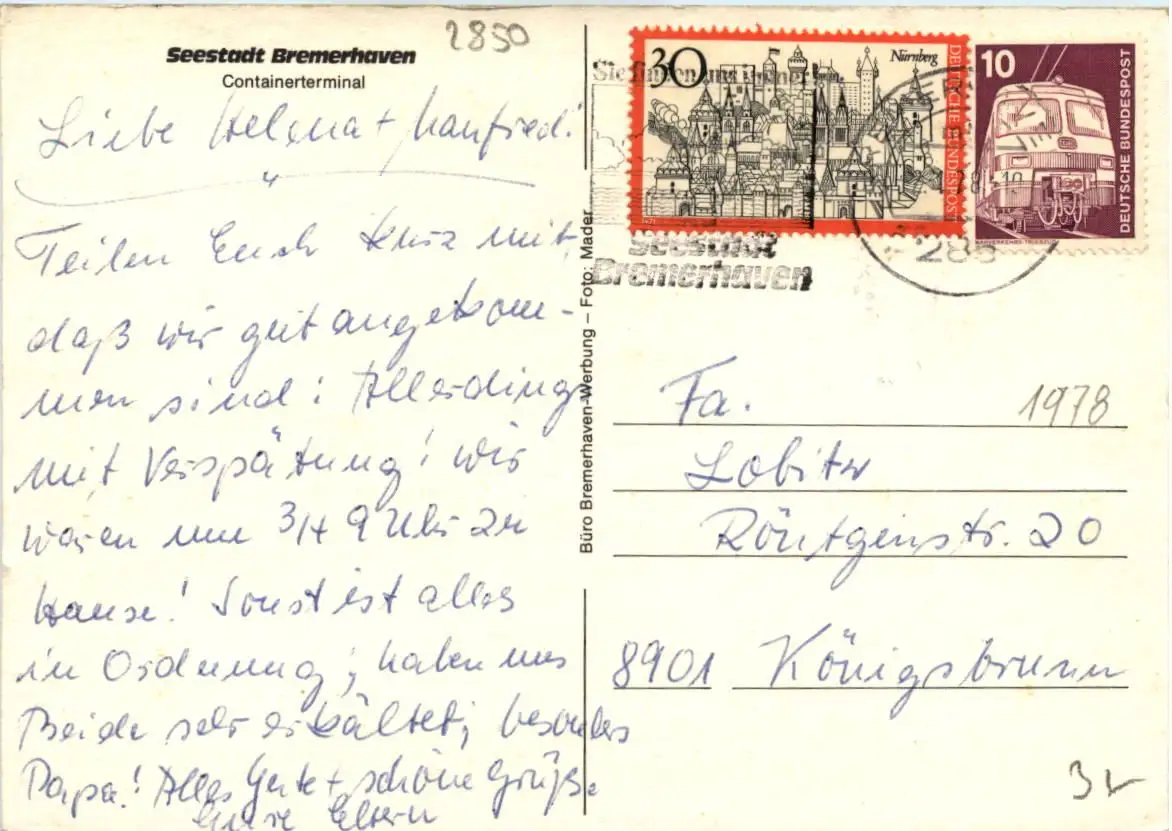 Seestadt Bremerhaven
Containerterminal
2850
Liebe Helena + Manfred!
Teilen Euch kurz mit,
daß wir gut angekom-
men sind! Allerdings
mit Verspätung! wir
waren um 3/4 9 Uhr zu
Hause! Sonst ist alles
in Ordnung; haben uns
Beide sehr erkältet, besonders
Papa! Alles Gute + schöne Grüße
Eure Eltern
Büro Bremerhaven-Werbung – Foto: Mader
30
Nürnberg
DEUTSCHE BUNDESPOST
10
DEUTSCHE BUNDESPOST
NAHVERKEHRS-TRIEBZUG
Sie finden uns immer
Seestadt
Bremerhaven
285
1978
Fa.
Lobitz
Röntgenstr. 20
8901 Königsbrunn